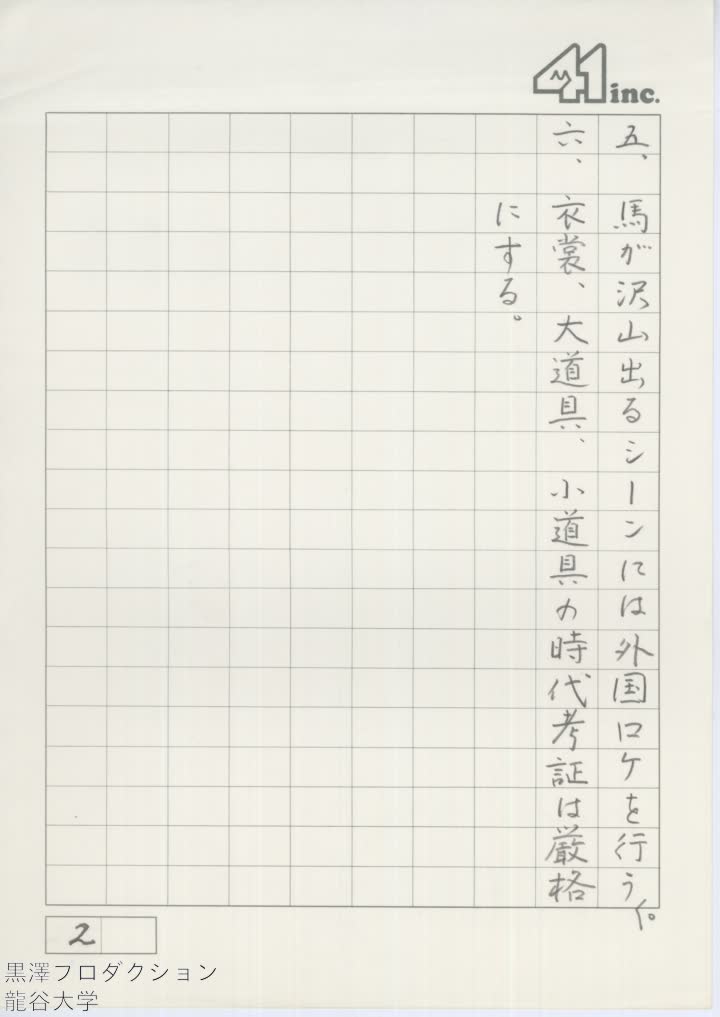 41 inc.
五、馬が沢山出るシーンには外国ロケを行う。
六、衣裳、大道具、小道具の時代考証は厳格
にする。
2
黒澤プロダクション
龍谷大学